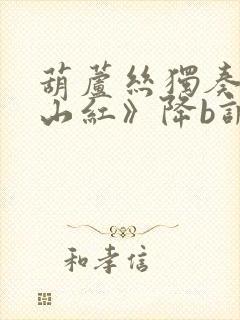 葫蘆絲獨奏
山紅》降b
和孝信